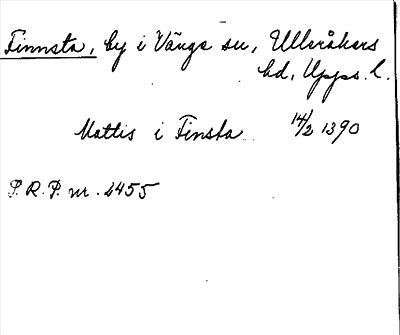 Finnsta, by i Vänge sn, Ulleråkers
hd, Upps. l.
Mattis i Finsta 14/2 1390
P.R.P. nr. 2455